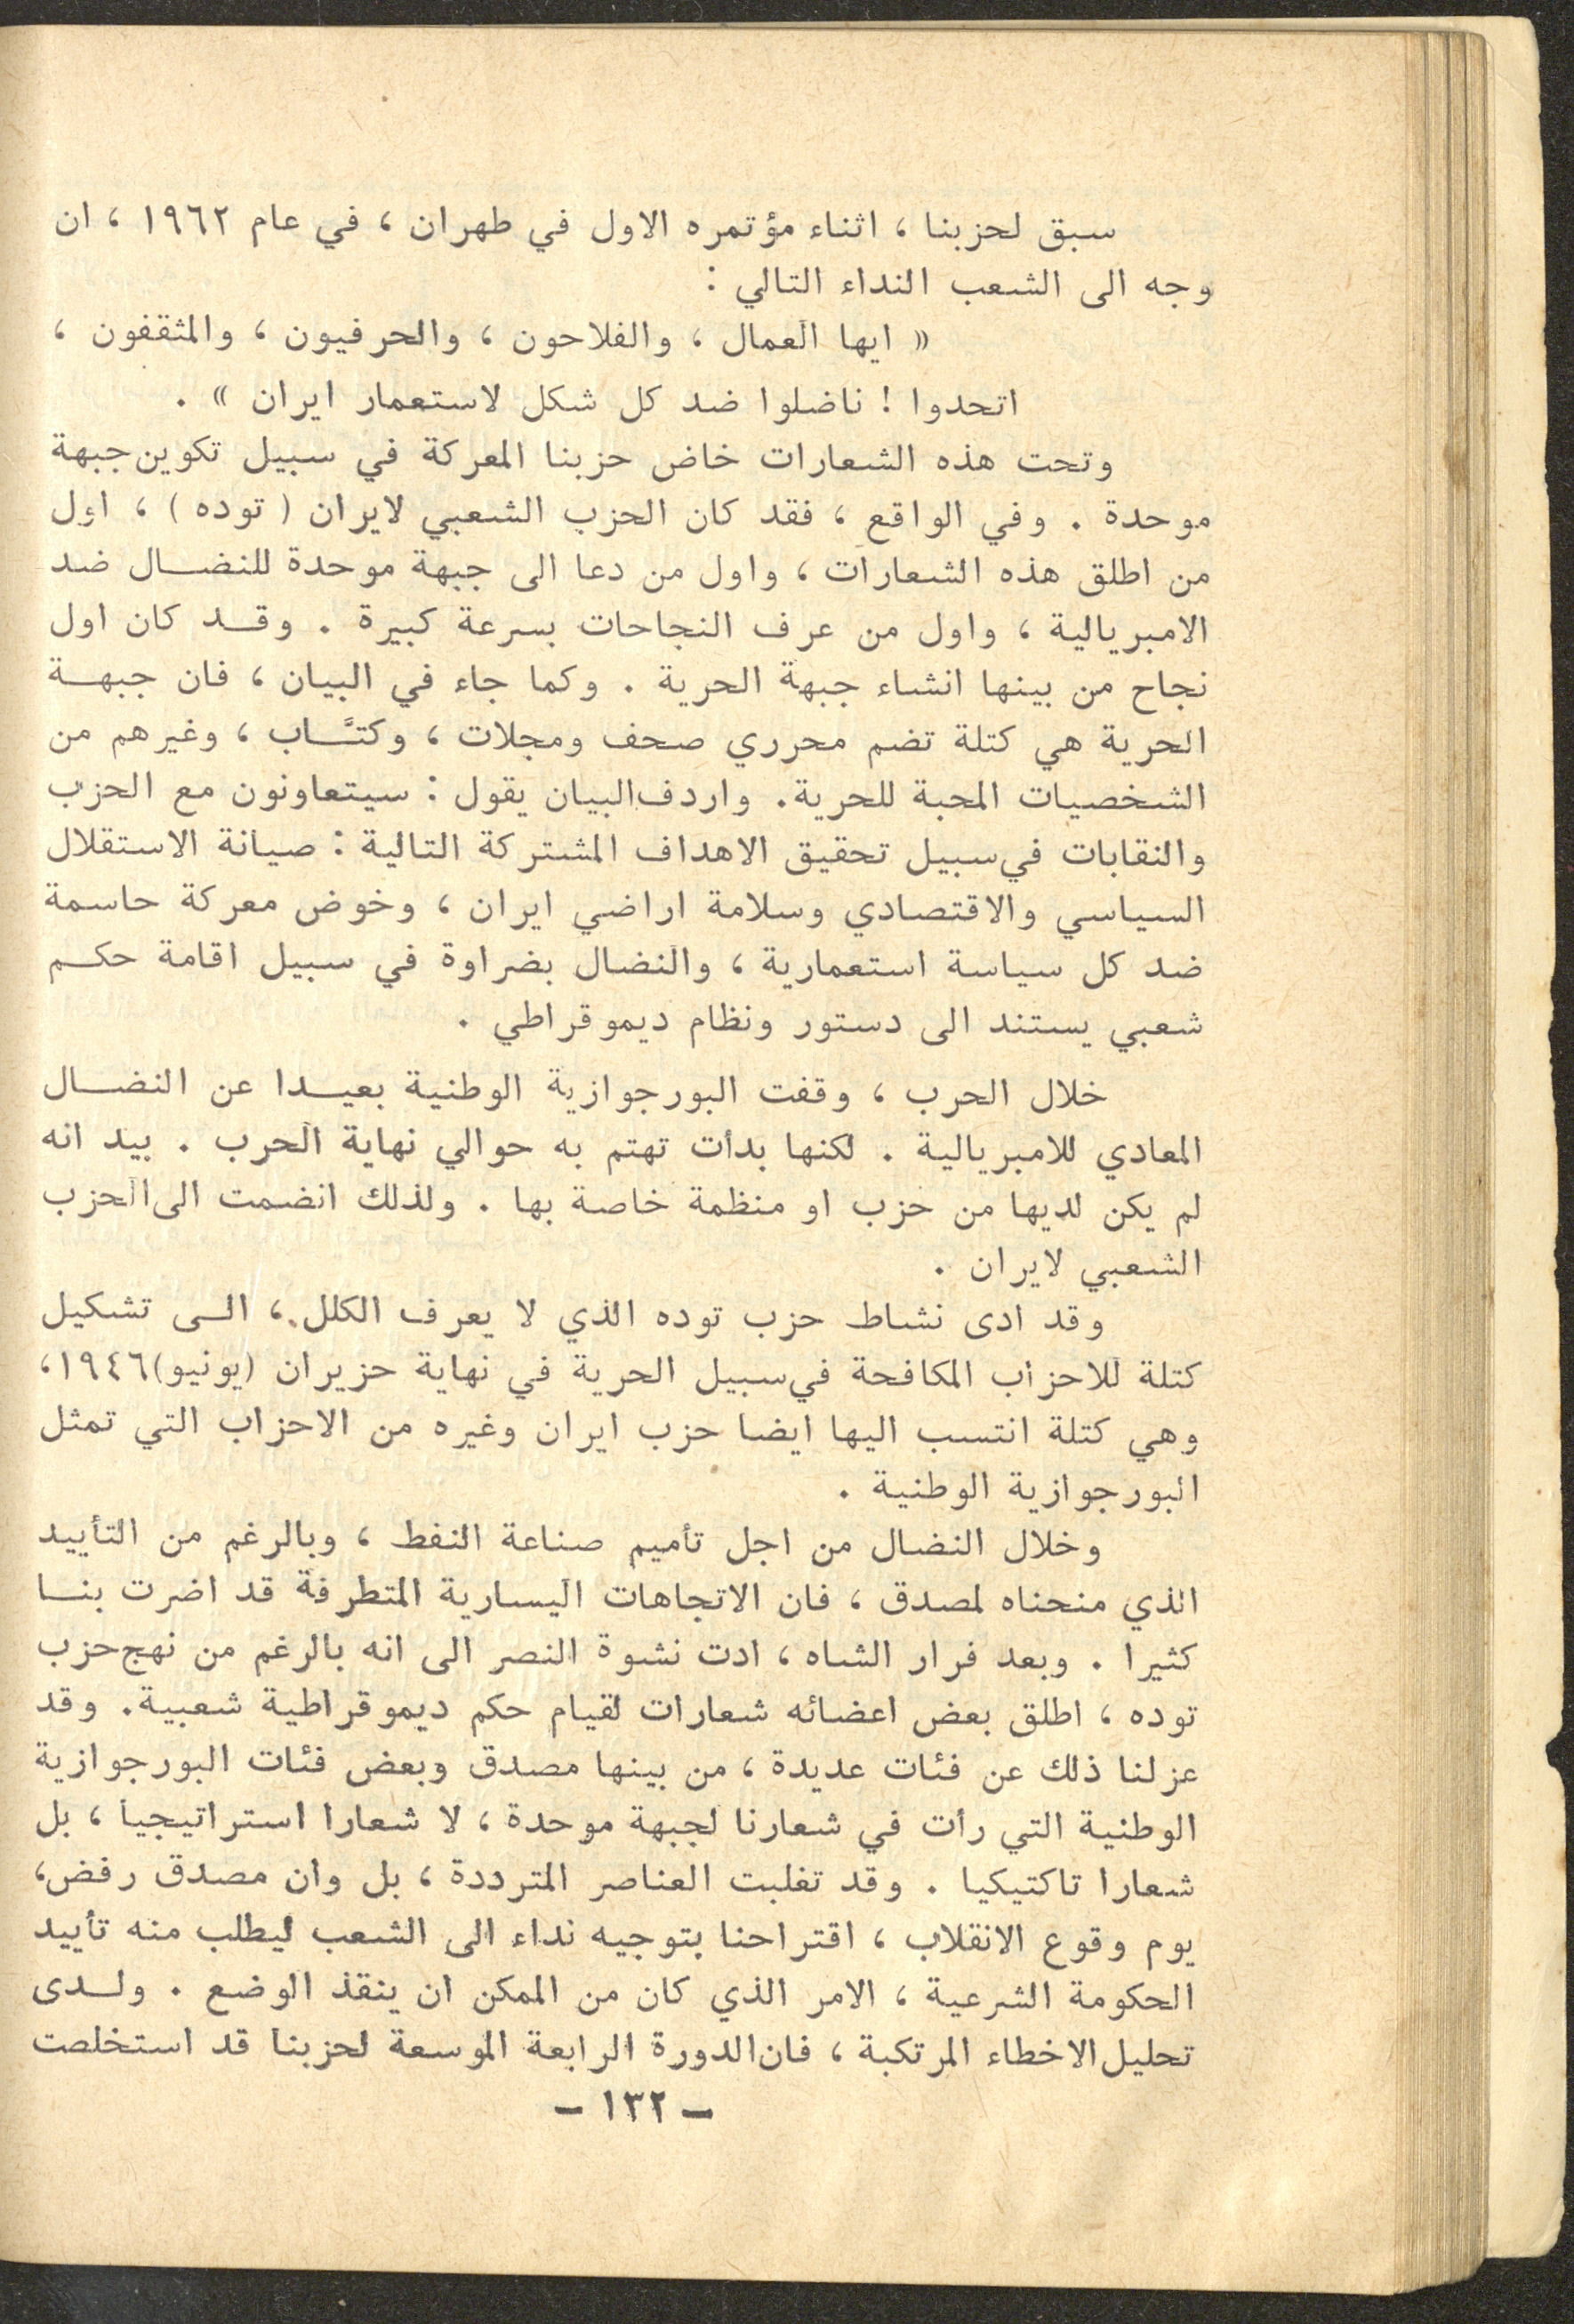 سبق لحزبنا ، اثناء مؤتمره الاول في طهران ، في عام ١٩٦٢ ، ان
وجه الى الشعب النداء التالي :
« ايها العمال ، والفلاحون ، والحرفيون ، والمثقفون ،
اتحدوا ! ناضلوا ضد كل شكل لاستعمار ايران » .
وتحت هذه الشعارات خاض حزبنا المعركة في سبيل تكوين جبهة
موحدة . وفي الواقع ، فقد كان الحزب الشعبي لايران ( توده ) ، اول
من اطلق هذه الشعارات ، واول من دعا الى جبهة موحدة للنضال ضد
الامبريالية ، واول من عرف النجاحات بسرعة كبيرة . وقد كان اول
نجاح من بينها انشاء جبهة الحرية . وكما جاء في البيان ، فان جبهة
الحرية هي كتلة تضم محرري صحف ومجلات ، وكتَّاب ، وغيرهم من
الشخصيات المحبة للحرية. واردف البيان يقول : سيتعاونون مع الحزب
والنقابات في سبيل تحقيق الاهداف المشتركة التالية : صيانة الاستقلال
السياسي والاقتصادي وسلامة اراضي ايران ، وخوض معركة حاسمة
ضد كل سياسة استعمارية ، والنضال بضراوة في سبيل اقامة حكم
شعبي يستند الى دستور ونظام ديموقراطي .
خلال الحرب ، وقفت البورجوازية الوطنية بعيدا عن النضال
المعادي للامبريالية . لكنها بدأت تهتم به حوالي نهاية الحرب . بيد انه
لم يكن لديها من حزب او منظمة خاصة بها . ولذلك انضمت الى الحزب
الشعبي لايران .
وقد ادى نشاط حزب توده الذي لا يعرف الكلل ، الى تشكيل
كتلة للاحزاب المكافحة في سبيل الحرية في نهاية حزيران (يونيو)١٩٤٦،
وهي كتلة انتسب اليها ايضا حزب ايران وغيره من الاحزاب التي تمثل
البورجوازية الوطنية .
وخلال النضال من اجل تأميم صناعة النفط ، وبالرغم من التأييد
الذي منحناه لمصدق ، فان الاتجاهات اليسارية المتطرفة قد اضرت بنا
كثيرا . وبعد فرار الشاه ، ادت نشوة النصر الى انه بالرغم من نهج حزب
توده ، اطلق بعض اعضائه شعارات لقيام حكم ديموقراطية شعبية. وقد
عزلنا ذلك عن فئات عديدة ، من بينها مصدق وبعض فئات البورجوازية
الوطنية التي رأت في شعارنا لجبهة موحدة ، لا شعارا استراتيجيا ، بل
شعارا تاكتيكيا . وقد تغلبت العناصر المترددة ، بل وان مصدق رفض،
يوم وقوع الانقلاب ، اقتراحنا بتوجيه نداء الى الشعب ليطلب منه تأييد
الحكومة الشرعية ، الامر الذي كان من الممكن ان ينقذ الوضع . ولدى
تحليل الاخطاء المرتكبة ، فان الدورة الرابعة الموسعة لحزبنا قد استخلصت
- ١٣٢ -